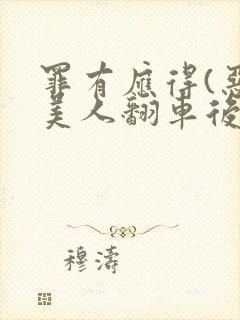 罪有應得(惡
美人翻車後
穆濤